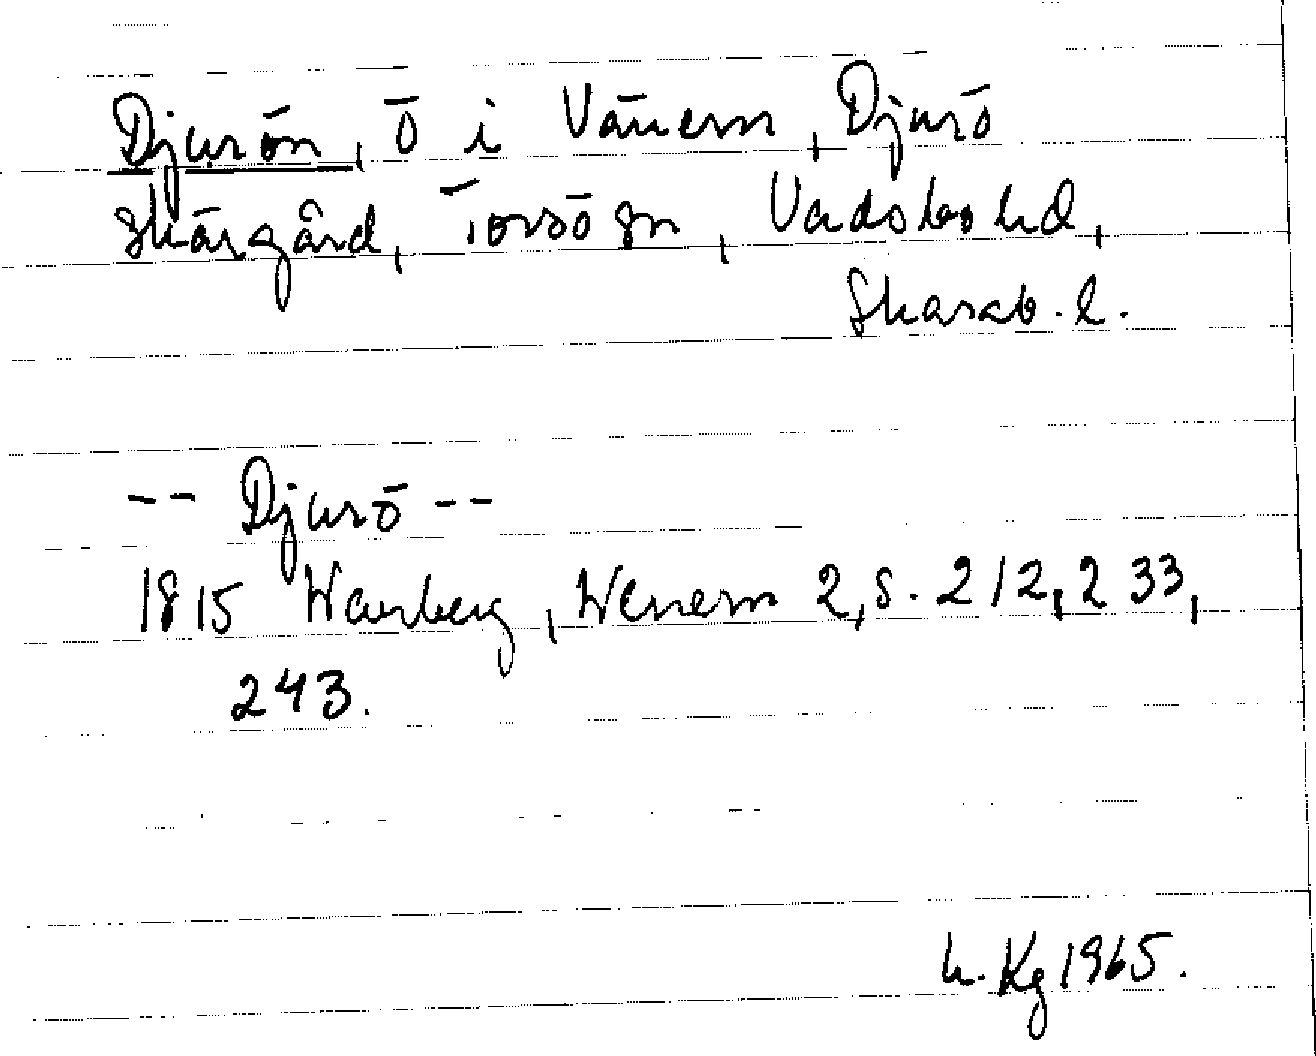 Djurön, ö i Vänern, Djurö
skärgård, Torsö sn, Vadsbo hd,
Skarab. l.
-- Djurö --
1815 Warberg, Wenern 2, s. 212, 233,
243.
Kg 1965.